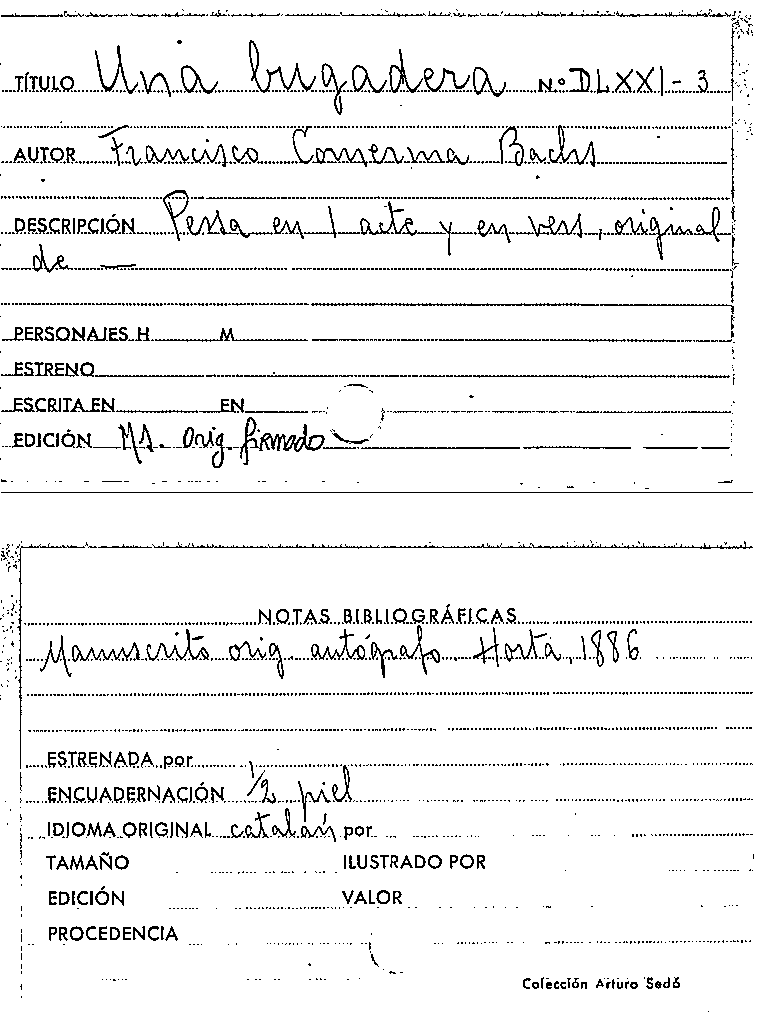 TÍTULO Una bugadera N.º DLXXI-3
AUTOR Francisco Comerma Bachs
DESCRIPCIÓN Pessa en 1 acte y en vers, original
de —
PERSONAJES H M
ESTRENO
ESCRITA EN EN
EDICIÓN Ms. orig. firmado
NOTAS BIBLIOGRÁFICAS
Manuscrito orig. autógrafo. Horta, 1886
ESTRENADA por
ENCUADERNACIÓN 1/2 piel
IDIOMA ORIGINAL catalán por
TAMAÑO ILUSTRADO POR
EDICIÓN VALOR
PROCEDENCIA
Colección Arturo Sedó